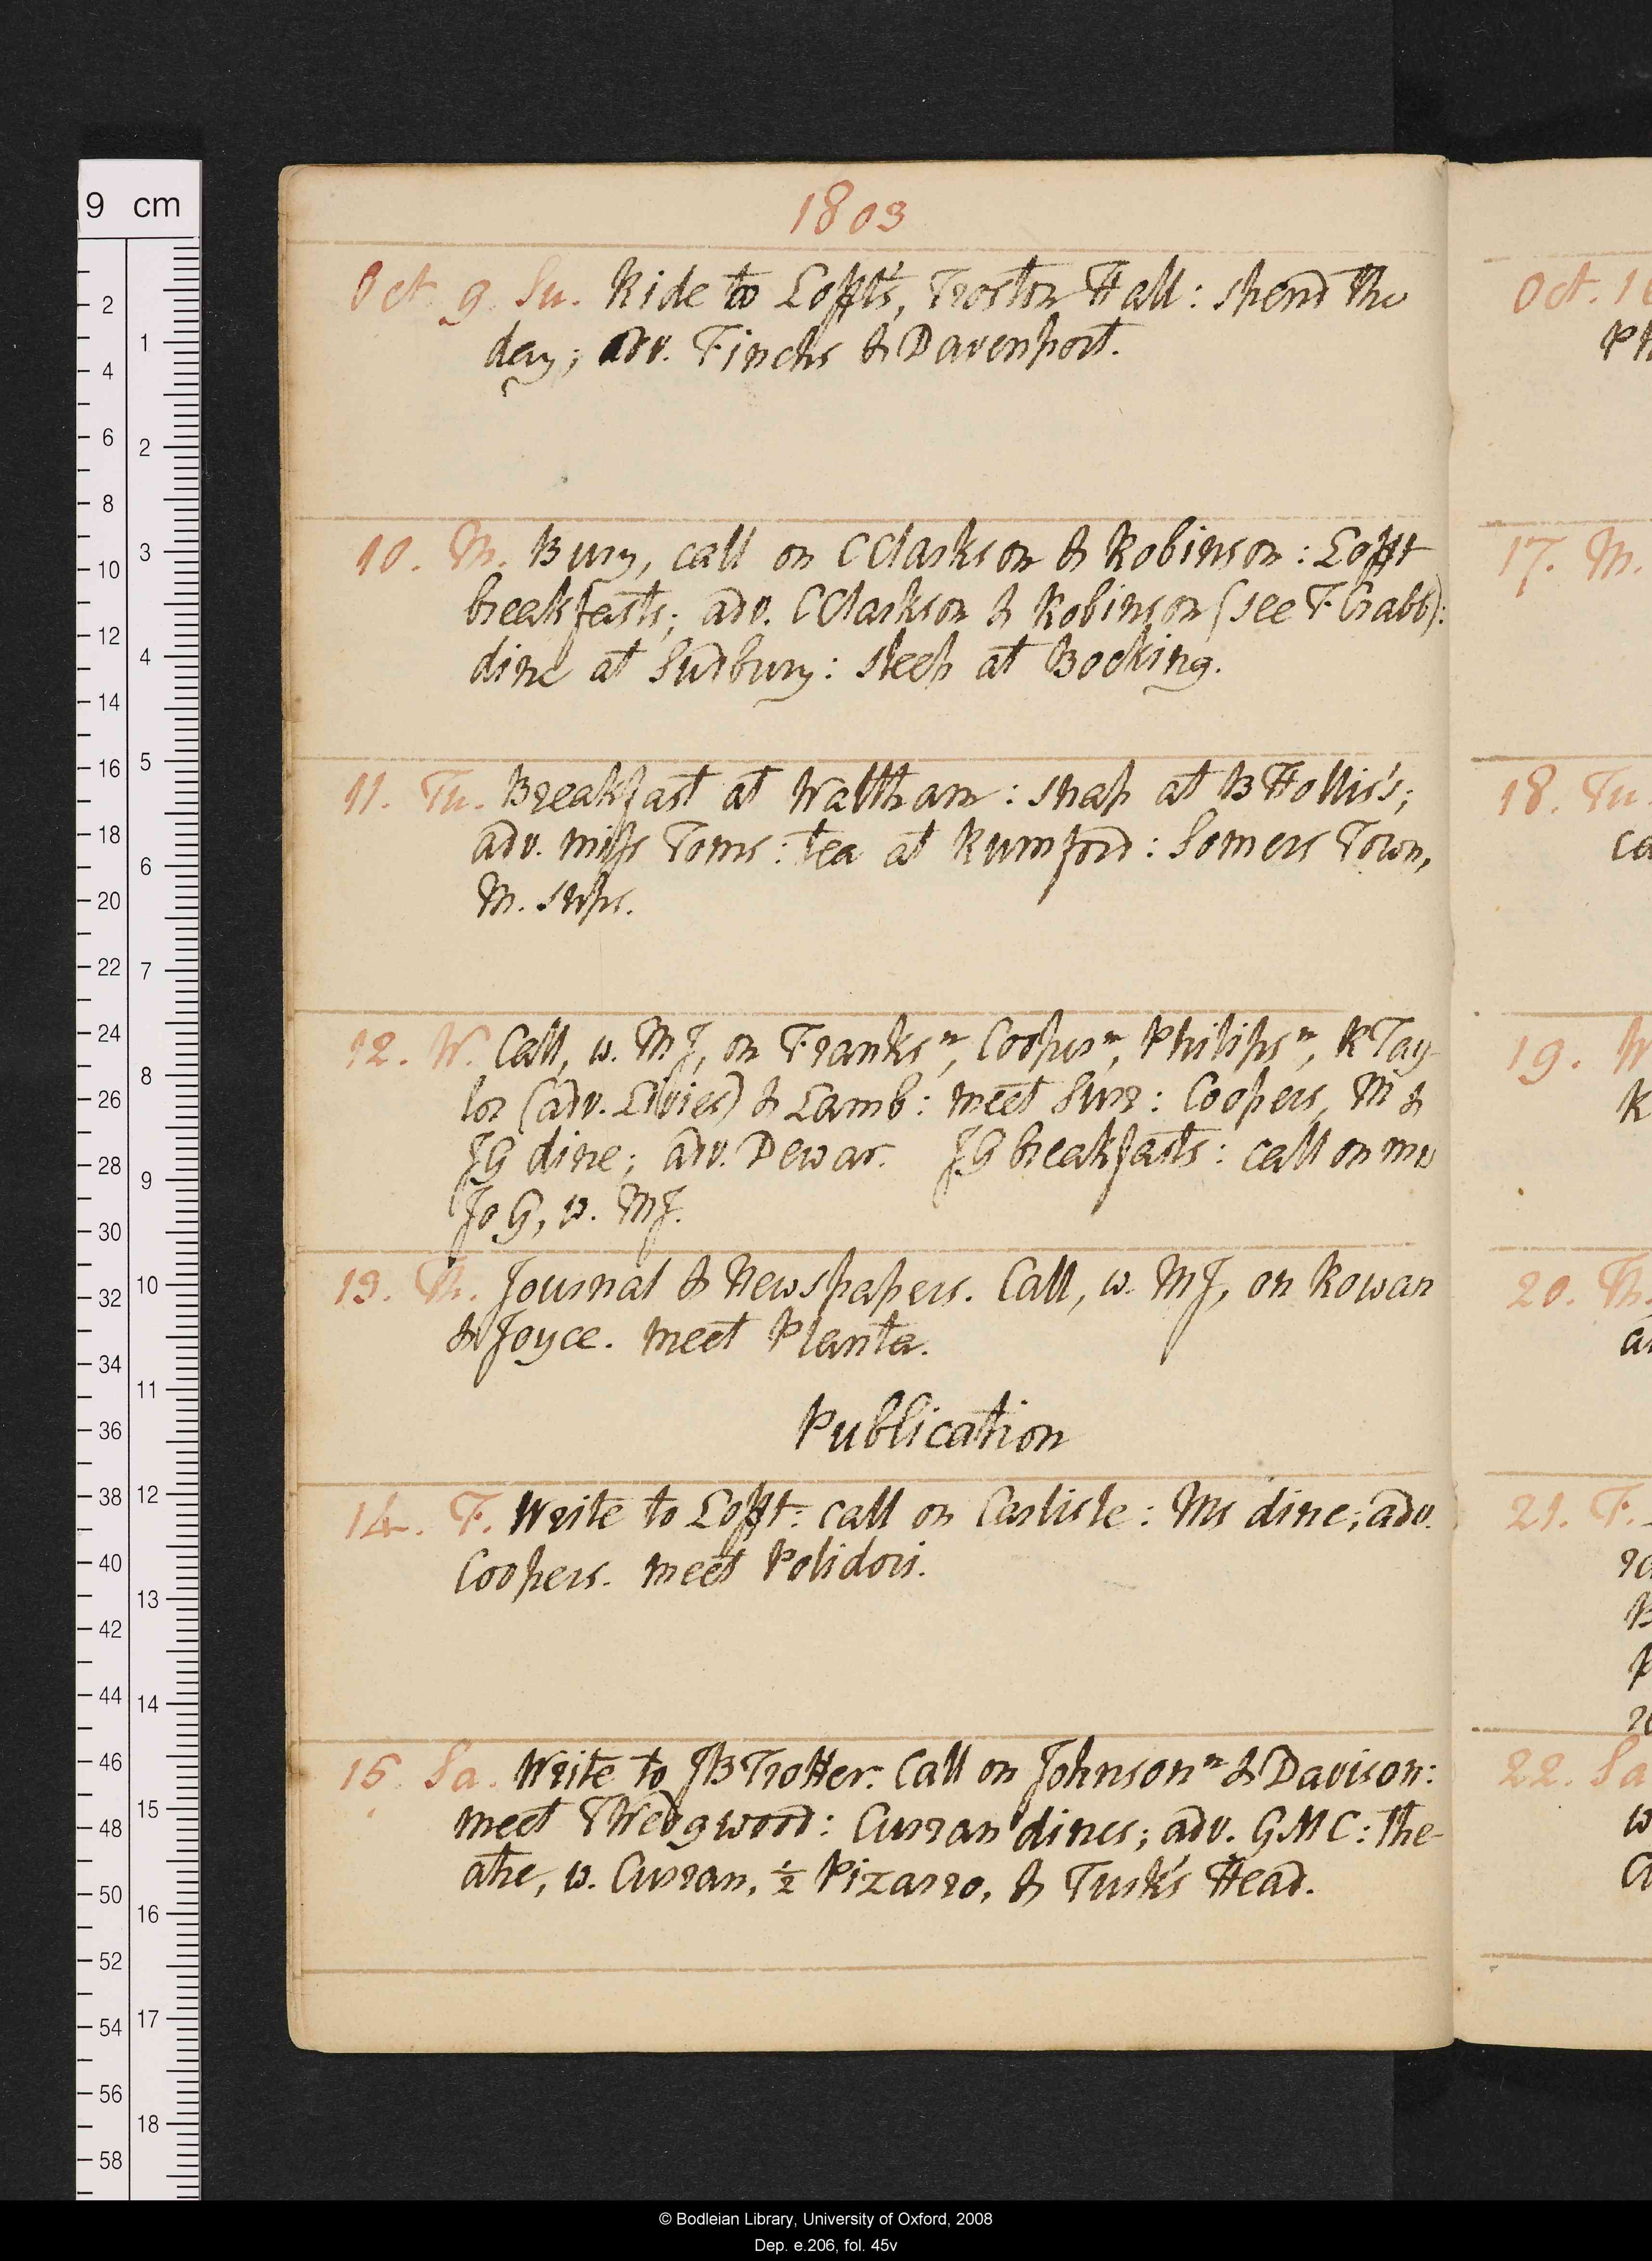 1803
Oct. 9. Su. Ride to Lofft's, Troston Hall: spend the
day; adv. Finchs & Davenport.
10. M. Bury, call on CClarkson & Robinson: Lofft
breakfasts; adv. CClarkson & Robinson (see T. Crabb):
dine at Sudbury: sleep at Bocking.
11. Tu. Breakfast at Waltham: snap at BHollis's;
adv. miss Toms: tea at Rumford: Somers Town,
M. sups.
12. W. Call, w. MJ, on Franks n, Cooper n, Philips n, RTay-
lor (adv. ) & Lamb: meet Surr: Coopers, M &
JG dine; adv. Dewar. JG breakfasts: call on mrs
JoG, w. MJ.
13. Th. Journal & Newspapers. Call, w. MJ, on Rowan
& Joyce. meet Planta.
Publication
14. F. Write to Lofft: call on Carlisle: Ms dine; adv.
Coopers. meet Polidori.
15. Sa. Write to JBTrotter. Call on Johnson n & Davison:
meet TWedgwood: Curran dines; adv. GMC: The-
atre, w. Curran, ½ Pizarro, & Turk's Head.
Oct. 16
Ph
17. M.
18. Tu.
ca
19. W
R
20. Th.
21. F.
22. Sa
w
9 cm
2
4
6
8
10
12
14
16
18
20
22
24
26
28
30
32
34
36
38
40
42
44
46
48
50
52
54
56
58
1
2
3
4
5
6
7
8
9
10
11
12
13
14
15
16
17
18
© Bodleian Library, University of Oxford, 2008
Dep. e.206, fol. 45v